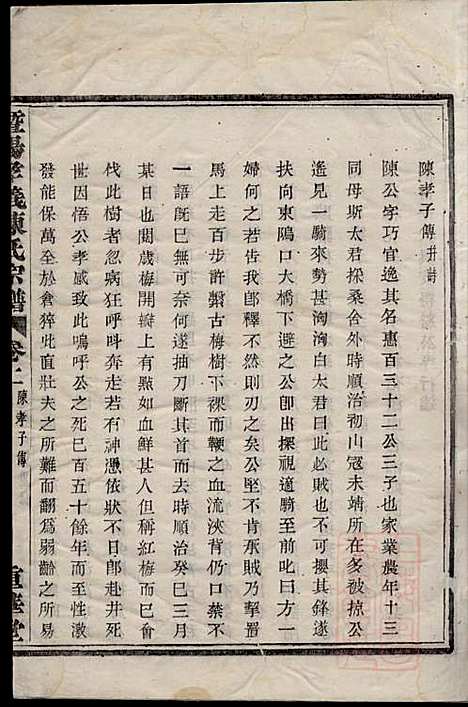 陳孝子傳并詩
陳公字巧官逸其名惠百三十二公三子也家業農年十三
同母斯太君採桑舍外時順治初山寇未靖所在多被掠公
遙見一騎來勢甚洶洶白太君曰此必賊不可攖其鋒遂
扶向東隝口大橋下避之公卽出探視適騎至問曰方一
婦何之若告我卽釋不然刃之矣公堅不肯承賊乃擊置
馬上走百步許繫古梅樹下裸而鞭之血流浹背仍口葉不
一語旣已無可奈何遂抽刀斷其首而去時順治癸巳三月
某日也閱歲梅開瓣上有點如血鮮甚人但稱紅梅而已會
伐此樹者忽病狂呼呌奔突若有神憑依狀不日卽赴井死
世因悟公孝感致此嗚呼公之死已百五十餘年而至性激
發能保萬全於倉猝此直壯夫之所難而翻爲弱齡之所易
暨陽孝義陳氏宗譜
卷十一
陳孝子傳
重華堂